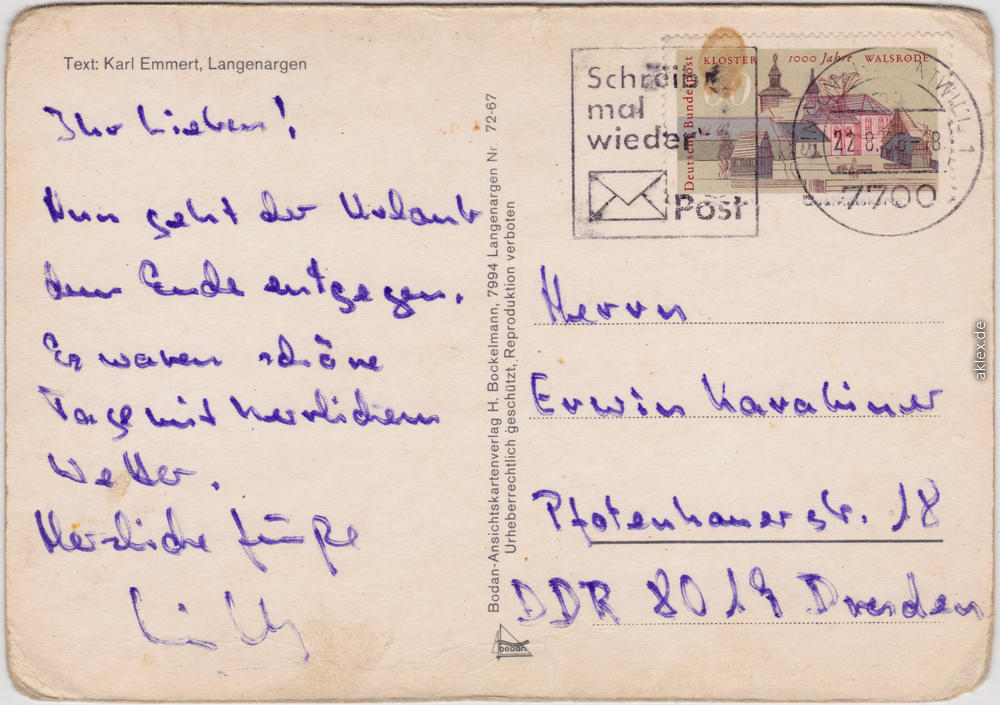 Text: Karl Emmert, Langenargen
Ihr Lieben!
Nun geht der Urlaub
dem Ende entgegen.
Es waren schöne
Tage mit herrlichem
Wetter.
Herzliche Grüße
Bodan-Ansichtskartenverlag H. Bockelmann, 7994 Langenargen Nr. 72-67
Urheberrechtlich geschützt, Reproduktion verboten
bodan
Schreib
mal
wieder
Post
Deutsche Bundespost
60
KLOSTER 1000 Jahre WALSRODE
22.8.
-18
7700
Herrn
Erwin Karabiner
Pfotenhauerstr. 18
DDR 8019 Dresden
aklex.de